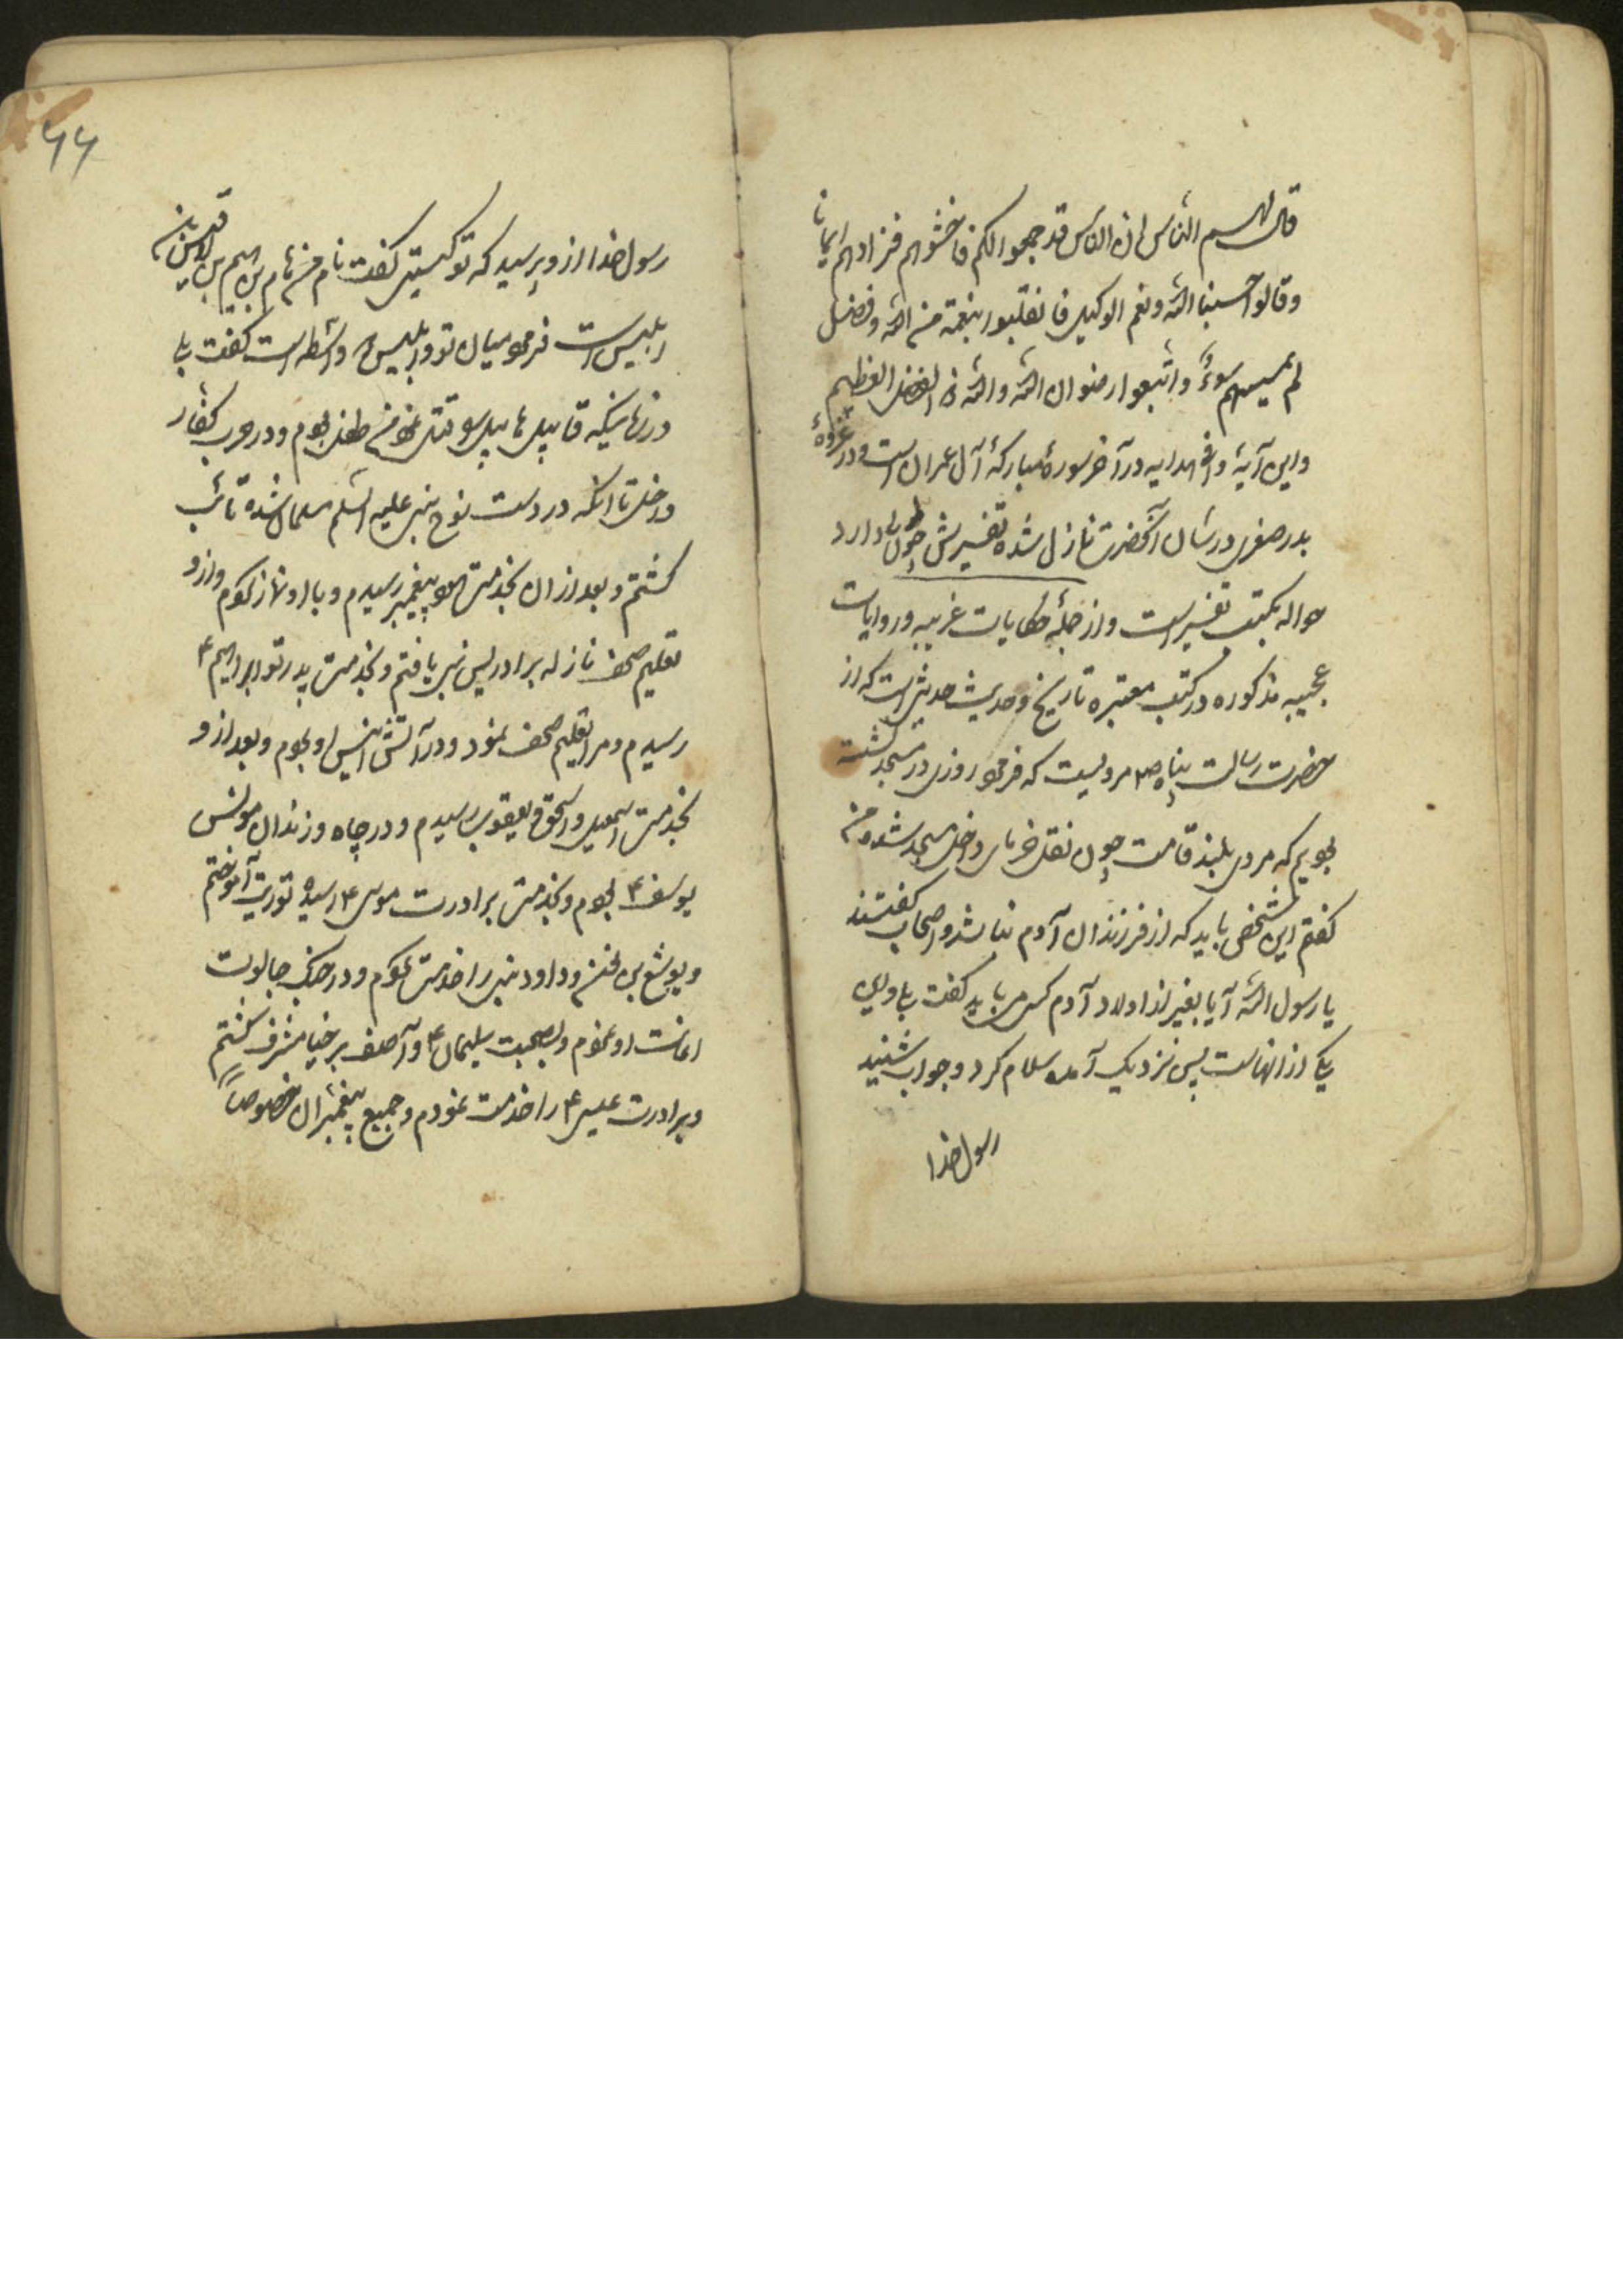 قال لهم الناس ان الناس قد جمعوا لکم فاخشوهم فزادهم ایمانا
وقالوا حسبنا الله ونعم الوکیل فانقلبوا بنعمة من الله وفضل
لم یمسسهم سوءً واتبعوا رضوان الله والله ذو الفضل العظیم
واین آیۀ وافی هدایه در آخر سورۀ مبارکۀ آل عمران است ودر غزوۀ
بدر صغری در شان آنحضرت نازل شده تفسیرش چون طول دارد
حواله بکتب تفسیر است واز جملۀ حکایات غریبه وروایات
عجیبه مذکوره در کتب معتبره تاریخ وحدیث حدیثی است که از
حضرت رسالت پناه ص مرویست که فرمود روزی در مسجد نشسته
بودیم که مردی بلند قامت چون نخل خرمای داخل مسجد شد من
گفتم این شخص باید که از فرزندان آدم نباشد واصحاب گفتند
یا رسول الله آیا بغیر از اولاد آدم کسی می باید گفت بلی واین
یکی از انهاست پس نزدیک آمده سلام کرد وجواب شنید
رسول خدا
۶۶
رسول خدا از وپرسید که تو کیستی گفت نام من هام بن هیم بن لاقیس بن
ابلیس است فرمود میان تو وابلیس دو واسطه است گفت بلی
در زمانیکه قابیل هابیل را قتل نمود من طفل بودم ودر حرب کفار
داخل تا انکه در دست نوح نبی علیه السلم مسلمان شده تائب
گشتم وبعد از ان بخدمت هود پیغمبر رسیدم وبا او نماز کردم واز و
تعلیم صحف نازله بر ادریس نبی یافتم وبخدمت پدرتو ابراهیم ع
رسیدم ومرا تعلیم صحف نمود ودر آتش انیس او بودم وبعد از و
بخدمت اسمعیل واسحق ویعقوب رسیدم ودر چاه وزندان مونس
یوسف ع بودم وبخدمت برادرت موسی ع رسیده توریة آموختم
ویوشع بن نون وداود نبی را خدمت کردم ودر جنگ جالوت
اعانت او نمودم وبصحبت سلیمان ع وآصف برخیا مشرف گشتم
وبرادرت عیسی ع را خدمت نمودم وجمیع پیغمبران خصوصاً